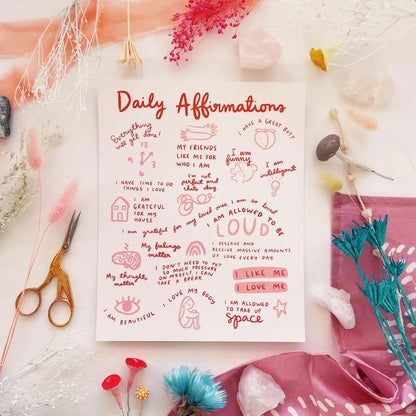 Daily Affirmations
Everything
will get done!
12
3
6
MY FRIENDS
LIKE ME FOR
WHO I AM
I HAVE A GREAT BUTT
I am
funny
I am
intelligent
I HAVE TIME TO DO
THINGS I LOVE
I'm not
perfect and
that's okay
I AM
GRATEFUL
FOR MY
HOUSE
I am grateful for my loved ones
I am so loved
I AM ALLOWED TO BE
LOUD
My feelings
matter
I DESERVE AND
RECEIVE MASSIVE AMOUNTS
OF LOVE EVERY DAY
My thoughts
matter
I DON'T NEED TO PUT
SO MUCH PRESSURE
ON MYSELF, I CAN
TAKE A BREAK
I LIKE ME
I LOVE ME
I AM BEAUTIFUL
I LOVE MY BODY
I AM ALLOWED
TO TAKE UP
space